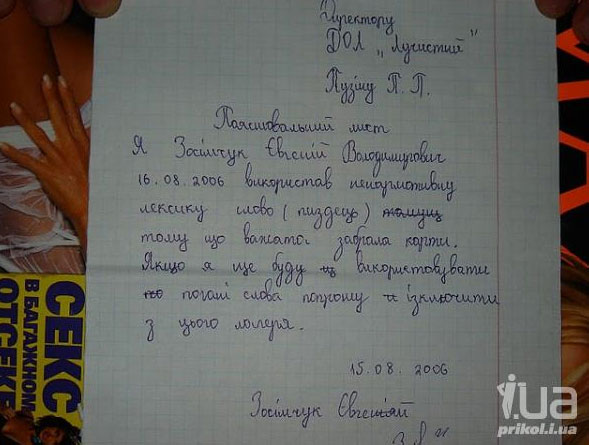 Директору
ДОЛ „Лучистий"
Пузіну П. П.
Пояснювальний лист
Я Зосімчук Євгеній Володимирович
16.08.2006 використав ненормотивну
лексику слово (пиздець)
тому що вожатоі забрала карти.
Якщо я ще буду використовувати
погані слова попрошу ізключити
з цього лагеря.
15.08.2006
Зосімчук Євгеній
СЕКС
В БАГАЖНОМ
ОТСЕКЕ
i.ua
prikol.i.ua